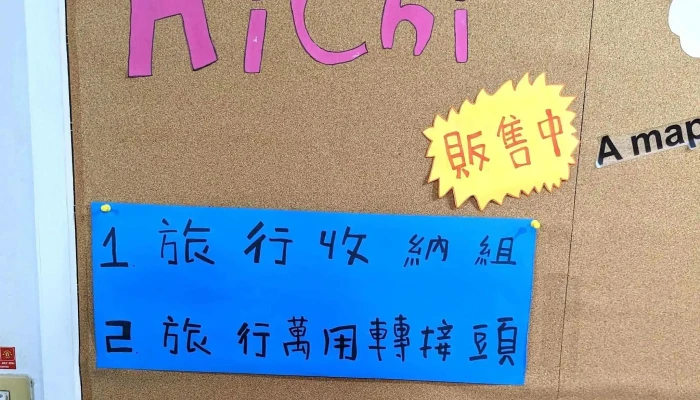 AiChi
販售中
A map
1 旅行收納組
2 旅行萬用轉接頭